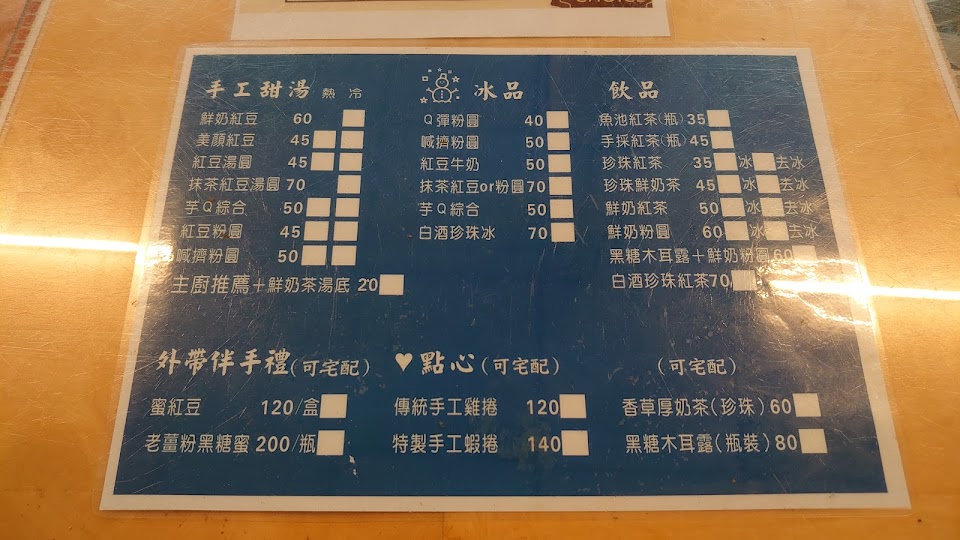 手工甜湯 熱 冷
鮮奶紅豆 60
美顏紅豆 45
紅豆湯圓 45
抹茶紅豆湯圓 70
芋Q綜合 50
紅豆粉圓 45
喊擠粉圓 50
主廚推薦+鮮奶茶湯底 20
冰品
Q彈粉圓 40
喊擠粉圓 50
紅豆牛奶 50
抹茶紅豆or粉圓 70
芋Q綜合 50
白酒珍珠冰 70
飲品
魚池紅茶(瓶) 35
手採紅茶(瓶) 45
珍珠紅茶 35 冰 去冰
珍珠鮮奶茶 45 冰 去冰
鮮奶紅茶 50 冰 去冰
鮮奶粉圓 60 冰 去冰
黑糖木耳露+鮮奶粉圓 60
白酒珍珠紅茶 70
外帶伴手禮(可宅配)
蜜紅豆 120/盒
老薑粉黑糖蜜 200/瓶
♥點心(可宅配)
傳統手工雞捲 120
特製手工蝦捲 140
(可宅配)
香草厚奶茶(珍珠) 60
黑糖木耳露(瓶裝) 80